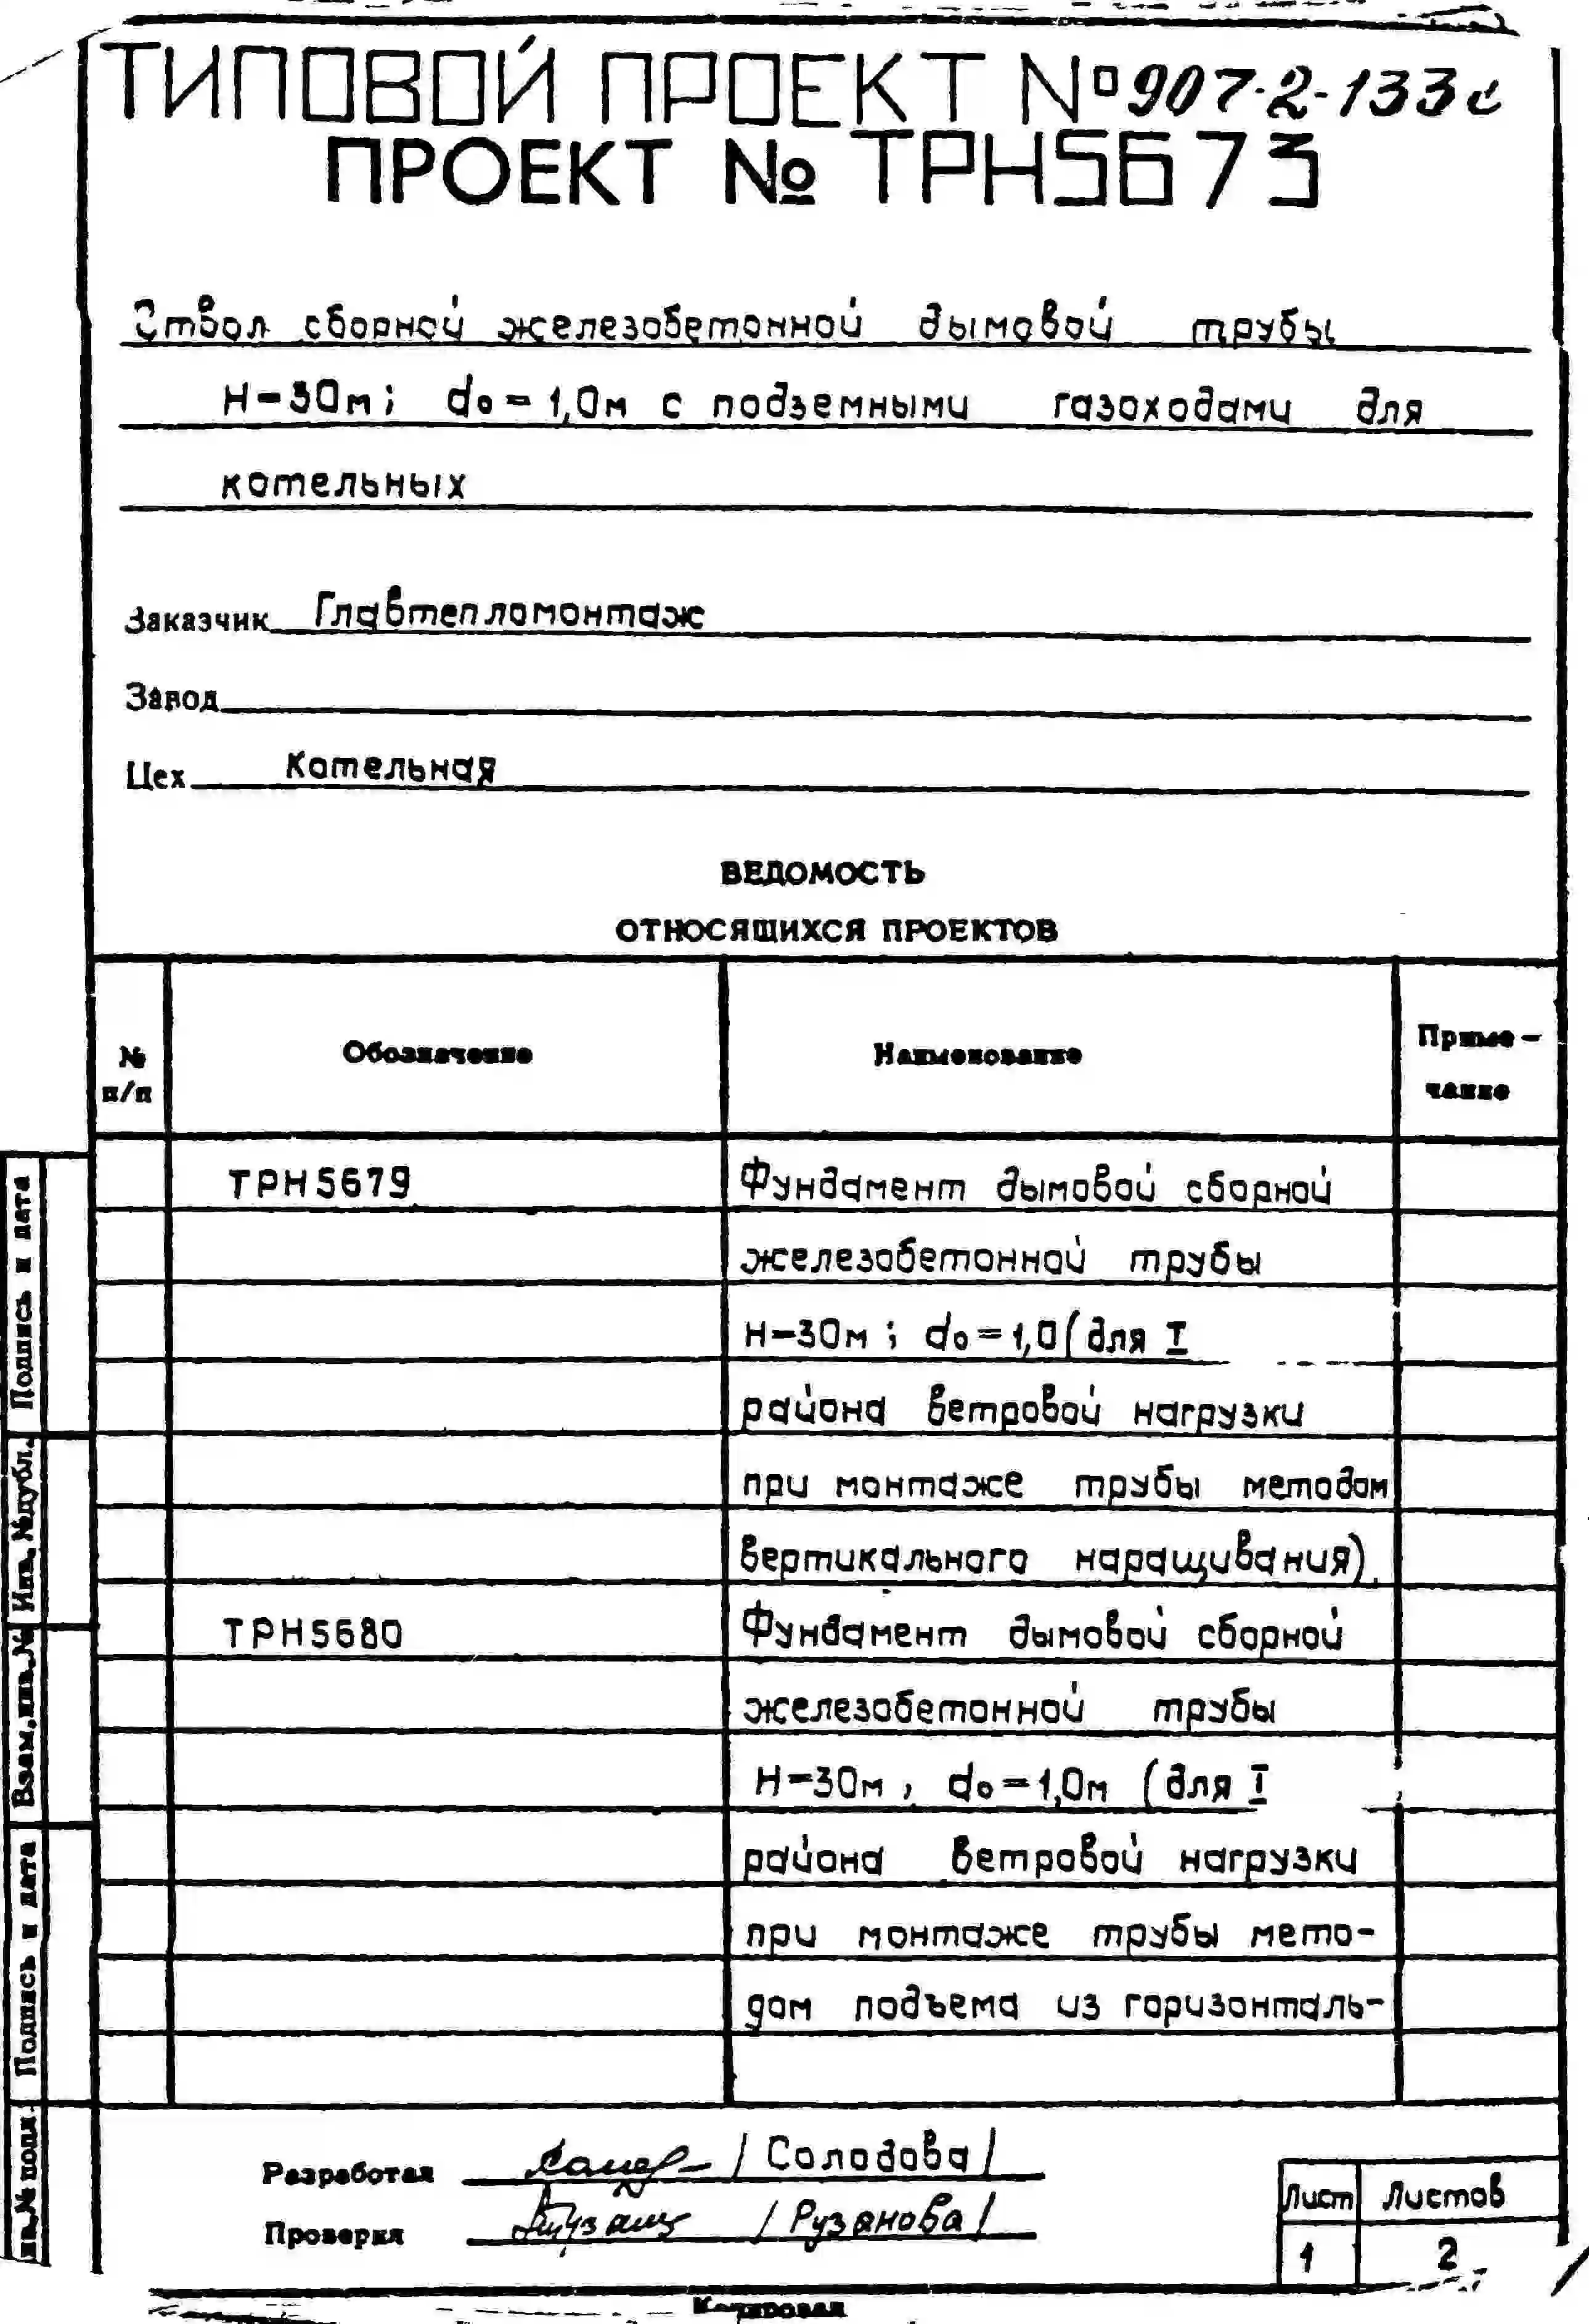 ТИПОВОЙ ПРОЕКТ № 907-2-133с
ПРОЕКТ № ТРН5673
Ствол сборной железобетонной дымовой трубы
Н-30м; do=1,0м с подземными газоходами для
котельных
Заказчик Главтепломонтаж
Завод
Цех Котельная
ВЕДОМОСТЬ
ОТНОСЯЩИХСЯ ПРОЕКТОВ
№ п/п Обозначение Наименование Приме-чание
ТРН5679 Фундамент дымовой сборной
железобетонной трубы
Н-30м; do=1,0(для I
района ветровой нагрузки
при монтаже трубы методом
вертикального наращивания)
ТРН5680 Фундамент дымовой сборной
железобетонной трубы
Н-30м, do-1,0м (для I
района ветровой нагрузки
при монтаже трубы мето-
дом подъема из горизонталь-
Разработал /Солодова/
Проверил /Рузанова/
Лист Листов
1 2
Копировал
Подпись и дата
Инв.№дубл.
Взам.инв.№
Подпись и дата
№ подл.